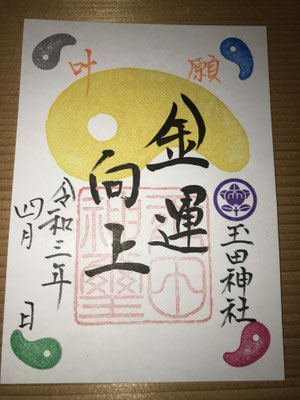 願
叶
金運
向上
玉田神社
令和三年
四月 日